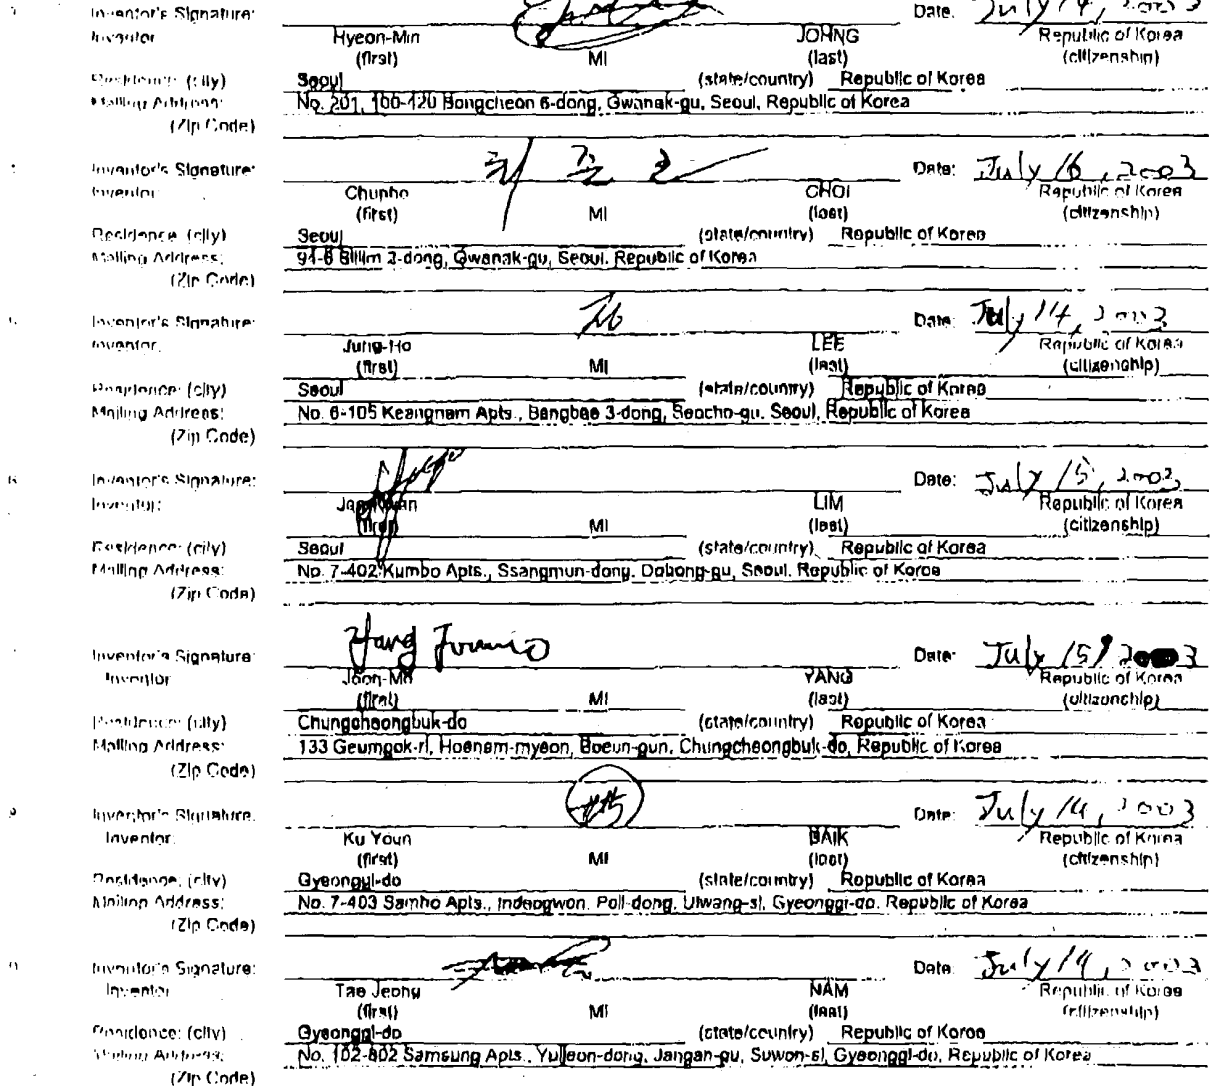 Inventor's Signature: Date: July 14, 2003
Inventor: Hyeon-Min JOHNG Republic of Korea
(first) MI (last) (citizenship)
Residence: (city) Seoul (state/country) Republic of Korea
Mailing Address: No. 201, 100-120 Bongcheon 6-dong, Gwanak-gu, Seoul, Republic of Korea
(Zip Code)
Inventor's Signature: 최 준 호 Date: July 16, 2003
Inventor: CHOI Republic of Korea
(first) MI (last) (citizenship)
Residence: (city) Seoul (state/country) Republic of Korea
Mailing Address: 2-dong, Gwanak-gu, Seoul, Republic of Korea
(Zip Code)
Inventor's Signature: Date: July 14, 2003
Inventor: Jung-Ho LEE Republic of Korea
(first) MI (last) (citizenship)
Residence: (city) Seoul (state/country) Republic of Korea
Mailing Address: No. 6-105 Keangnam Apts., Bangbae 3-dong, Seocho-gu, Seoul, Republic of Korea
(Zip Code)
Inventor's Signature: Date: July 15, 2003
Inventor: LIM Republic of Korea
(first) MI (last) (citizenship)
Residence: (city) Seoul (state/country) Republic of Korea
Mailing Address: No. 7-402 Kumbo Apts., Ssangmun-dong, Dobong-gu, Seoul, Republic of Korea
(Zip Code)
Inventor's Signature: Yang Date: July 15, 2003
Inventor YANG Republic of Korea
(first) MI (last) (citizenship)
Residence: (city) Chungcheongbuk-do (state/country) Republic of Korea
Mailing Address: 133 Geumgok-ri, Hoenam-myeon, Boeun-gun, Chungcheongbuk-do, Republic of Korea
(Zip Code)
9 Inventor's Signature: Date: July 14, 2003
Inventor: Ku Youn BAIK Republic of Korea
(first) MI (last) (citizenship)
Residence: (city) Gyeonggi-do (state/country) Republic of Korea
Mailing Address: No. 7-403 Samho Apts., Indeogwon, Poil-dong, Uiwang-si, Gyeonggi-do, Republic of Korea
(Zip Code)
Inventor's Signature: Date: July 14, 2003
Inventor: Tae Jeong NAM Republic of Korea
(first) MI (last) (citizenship)
Residence: (city) Gyeonggi-do (state/country) Republic of Korea
Mailing Address: No. 102-802 Samsung Apts., Yuljeon-dong, Jangan-gu, Suwon-si, Gyeonggi-do, Republic of Korea
(Zip Code)